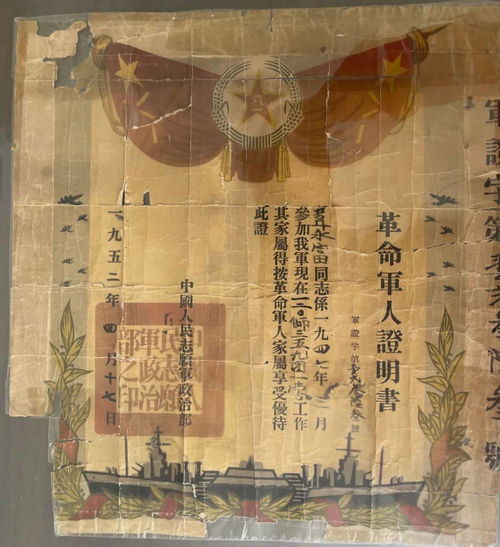 軍證字第
革命軍人證明書
軍證字第 號
永富同志係一九四七年二月
參加我軍現在一二〇師三五九團一營工作
其家屬得按革命軍人家屬享受優待
此證
八一
中國人民志願軍政治部
一九五二年四月十七日
中國人
民志願
軍政治
部之印